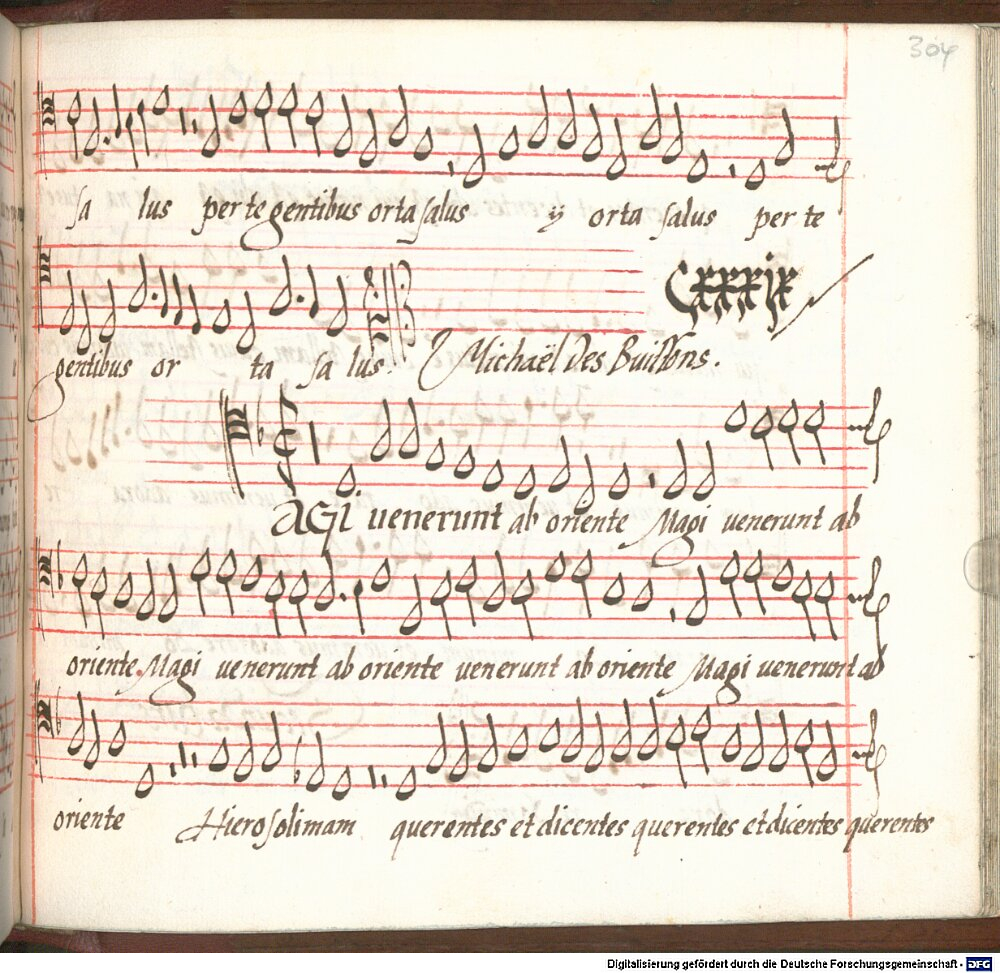 304
sa lus per te gentibus orta salus ij orta salus per te
Cxxxix
gentibus or ta sa lus. Michaël des Buissons.
AGI uenerunt ab oriente Magi uenerunt ab
oriente Magi uenerunt ab oriente uenerunt ab oriente Magi uenerunt ab
oriente Hierosolimam querentes et dicentes querentes et dicentes querentes
Digitalisierung gefördert durch die Deutsche Forschungsgemeinschaft - DFG